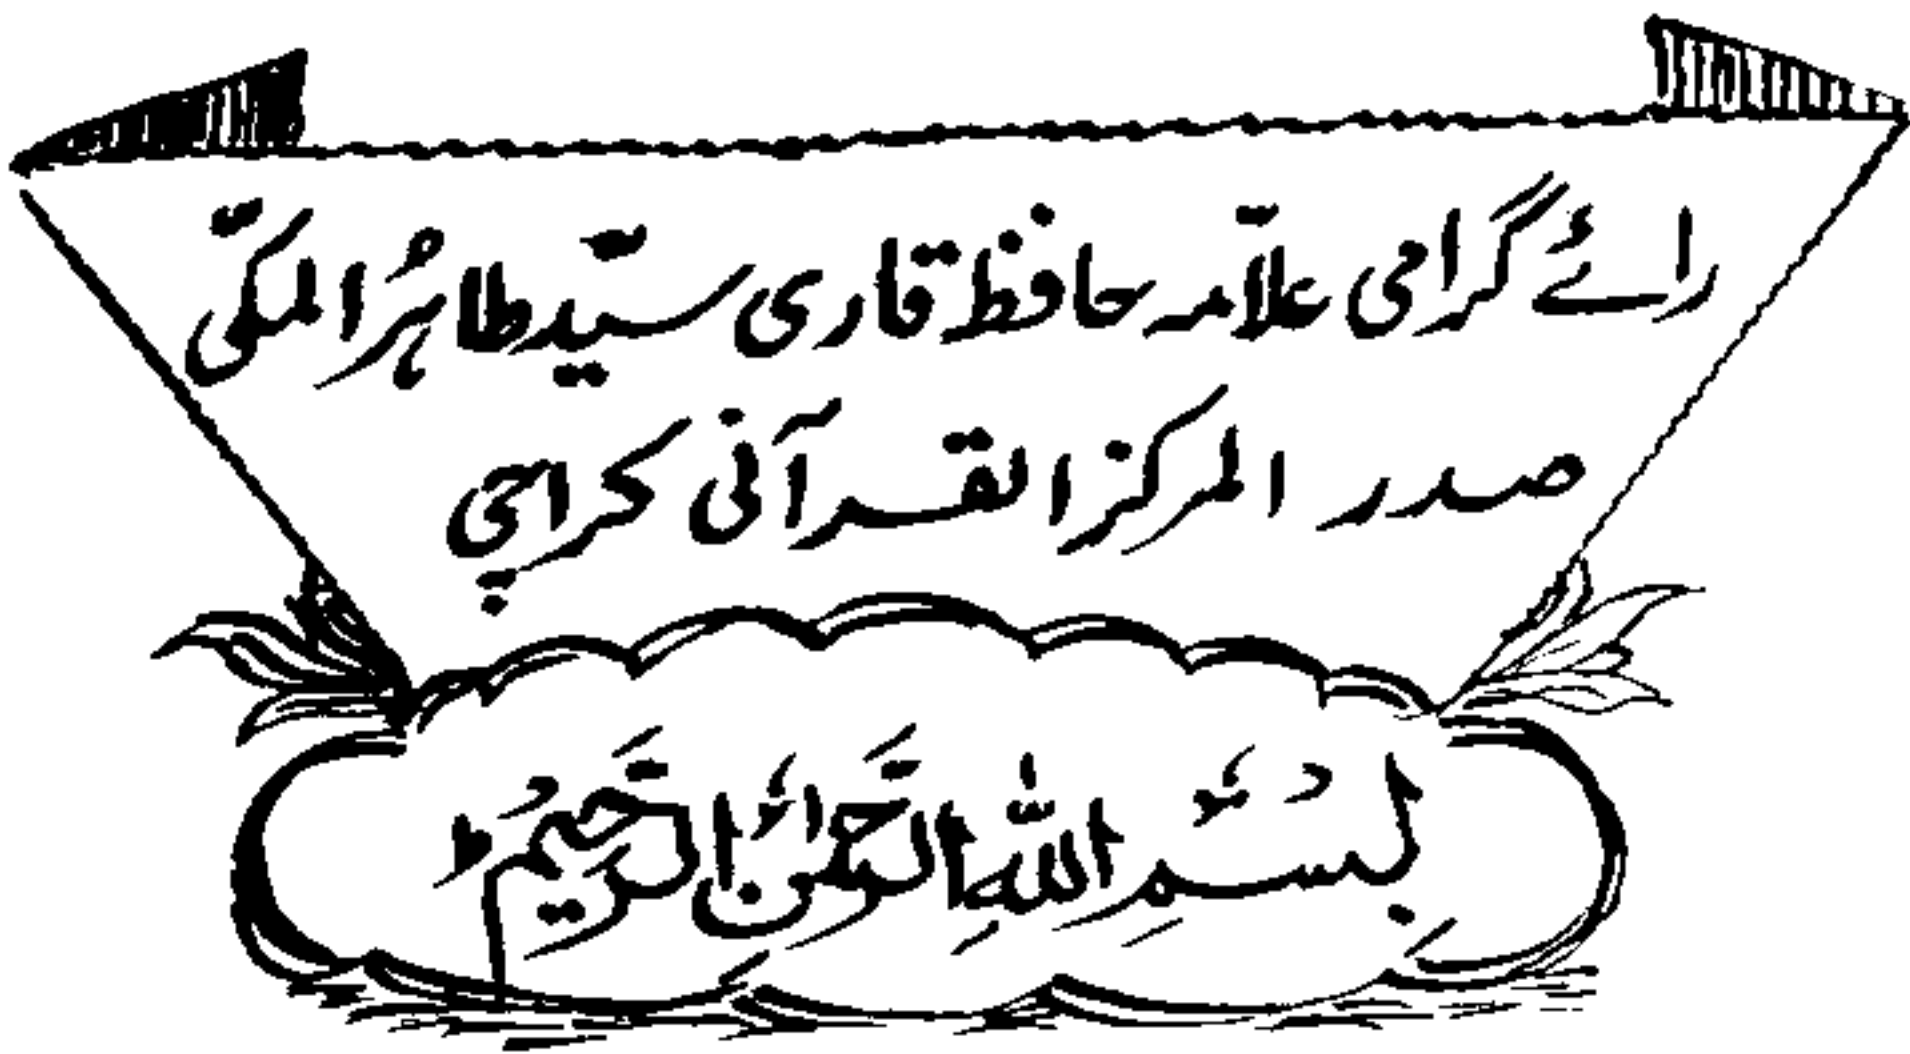 رائے گرامی علّامہ حافظ قاری سیّد طاہر المکّی
صدر المرکز القرآنی کراچی
بِسْمِ اللّٰهِ الرَّحْمٰنِ الرَّحِيْمِ ط